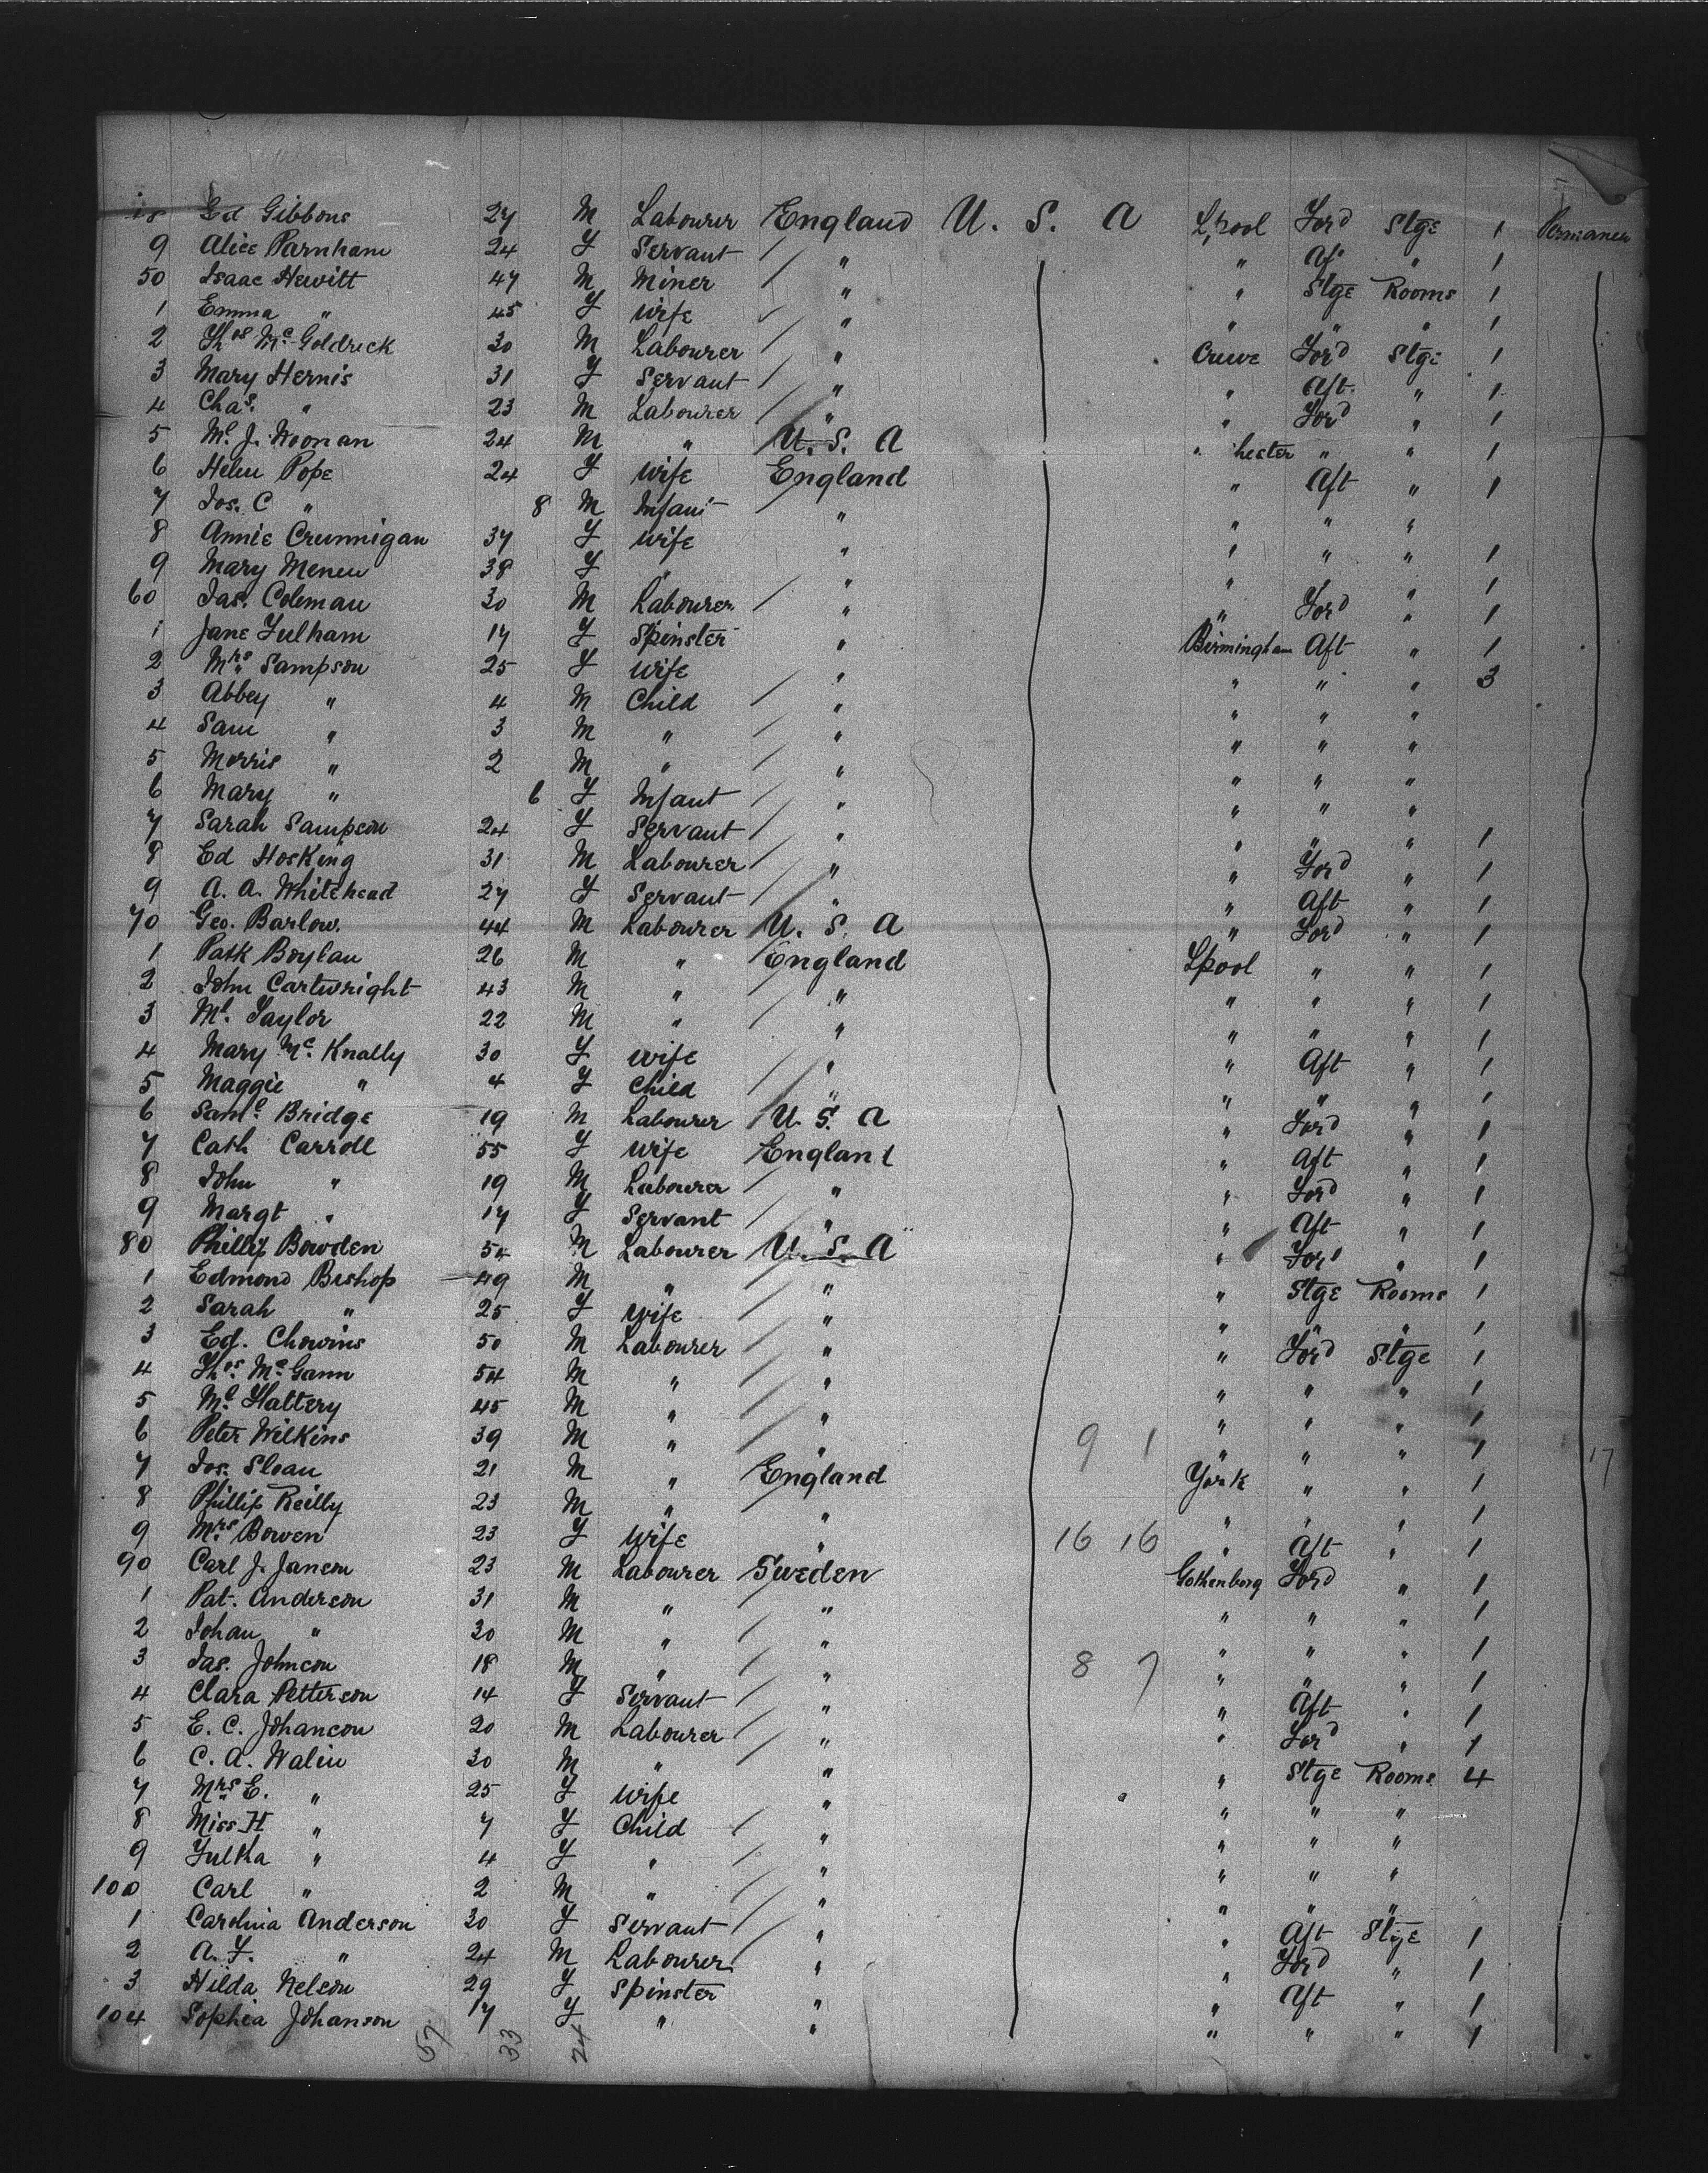 Ed Gibbons 27 M Labourer England U. S. A L,pool Ford Stge 1 Permanen
9 Alice Parnham 24 F Servant " " Aft " 1
50 Isaac Hewitt 47 M Miner " " Stge Rooms 1
1 Emma " 45 F Wife " " " " 1
2 Thos McGoldrick 30 M Labourer " Crewe Ford Stge 1
3 Mary Hernis 31 F Servant " " Aft. " 1
4 Chas. " 23 M Labourer " " Ford " 1
5 Ml. J. Noonan 24 M " U. S. A hester " " 1
6 Helen Pope 24 F Wife England " Aft " 1
7 Jos. C " 8 M Infant " " " "
8 Annie Crunnigan 37 F Wife " " " " 1
9 Mary Meneu 38 F " " " " 1
60 Jas. Coleman 30 M Labourer " " Ford " 1
1 Jane Fulham 17 F Spinster " Birmingham Aft " 1
2 Mrs Sampson 25 F Wife " " " " 3
3 Abbey " 4 M Child " " " "
4 Sam " 3 M " " " " "
5 Morris " 2 M " " " " "
6 Mary " 6 F Infant " " " "
7 Sarah Sampson 24 F Servant " " " " 1
8 Ed Hosking 31 M Labourer " " Ford " 1
9 A. A. Whitehead 27 F Servant " " Aft " 1
70 Geo. Barlow. 44 M Labourer U. S. A " Ford " 1
1 Patk Boylan 26 M " England Lpool " " 1
2 John Cartwright 43 M " " " " " 1
3 Ml. Taylor 22 M " " " " " 1
4 Mary Mc. Knally 30 F Wife " " Aft " 1
5 Maggie " 4 F Child " " " " 1
6 Saml. Bridge 19 M Labourer U. S. A " Ford " 1
7 Cath Carroll 55 F Wife England " Aft " 1
8 John " 19 M Labourer " " Ford " 1
9 Margt " 17 F Servant " " Aft " 1
80 Phillip Bowden 54 M Labourer U. S. A " Ford " 1
1 Edmond Bishop 49 M " " " Stge Rooms 1
2 Sarah " 25 F Wife " " " " 1
3 Ed. Chowins 50 M Labourer " " Ford Stge 1
4 Thos. McGann 54 M " " " " " 1
5 Ml. Hattery 45 M " " " " " 1
6 Peter Wilkins 39 M " " 9 1 " " " 1 17
7 Jos. Sloan 21 M " England York " " 1
8 Phillip Reilly 23 M " " " " " 1
9 Mrs Bowen 23 F Wife " 16 16 " Aft " 1
90 Carl J. Janson 23 M Labourer Sweden Gothenborg Ford " 1
1 Pat. Anderson 31 M " " " " "
2 Johan " 30 M " " " " " 1
3 Jas. Johnson 18 M " " 8 7 " " " 1
4 Clara Petterson 14 F Servant " " Aft " 1
5 E. C. Johanson 20 M Labourer " " Ford " 1
6 C. A. Walin 30 M " " " Stge Rooms 4
7 Mrs E. " 25 F Wife " " " "
8 Miss H " 7 F Child " " " "
9 Fulka " 4 F " " " " "
100 Carl " 2 M " " " " "
1 Carolina Anderson 30 F Servant " " Aft Stge 1
2 A. F. " 24 M Labourer " " Ford " 1
3 Hilda Nelson 29 F Spinster " " Aft " 1
104 Sophia Johanson 17 F " " " " " 1
57 33 24